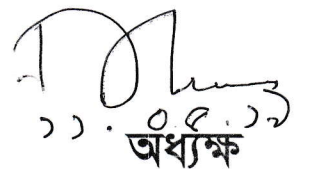 ১১.০৫.১৯
অধ্যক্ষ